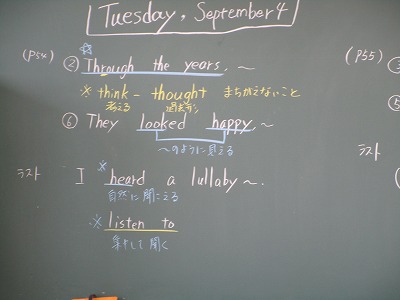 Tuesday, September 4
(P54)
② Through the years, ~
※ think - thought まちがえないこと
考える 過去形
⑥ They looked happy, ~
~のように見える
ラスト I ※heard a lullaby ~.
自然に聞こえる
※ listen to
集中して聞く
(P55)
③
⑤
ラスト